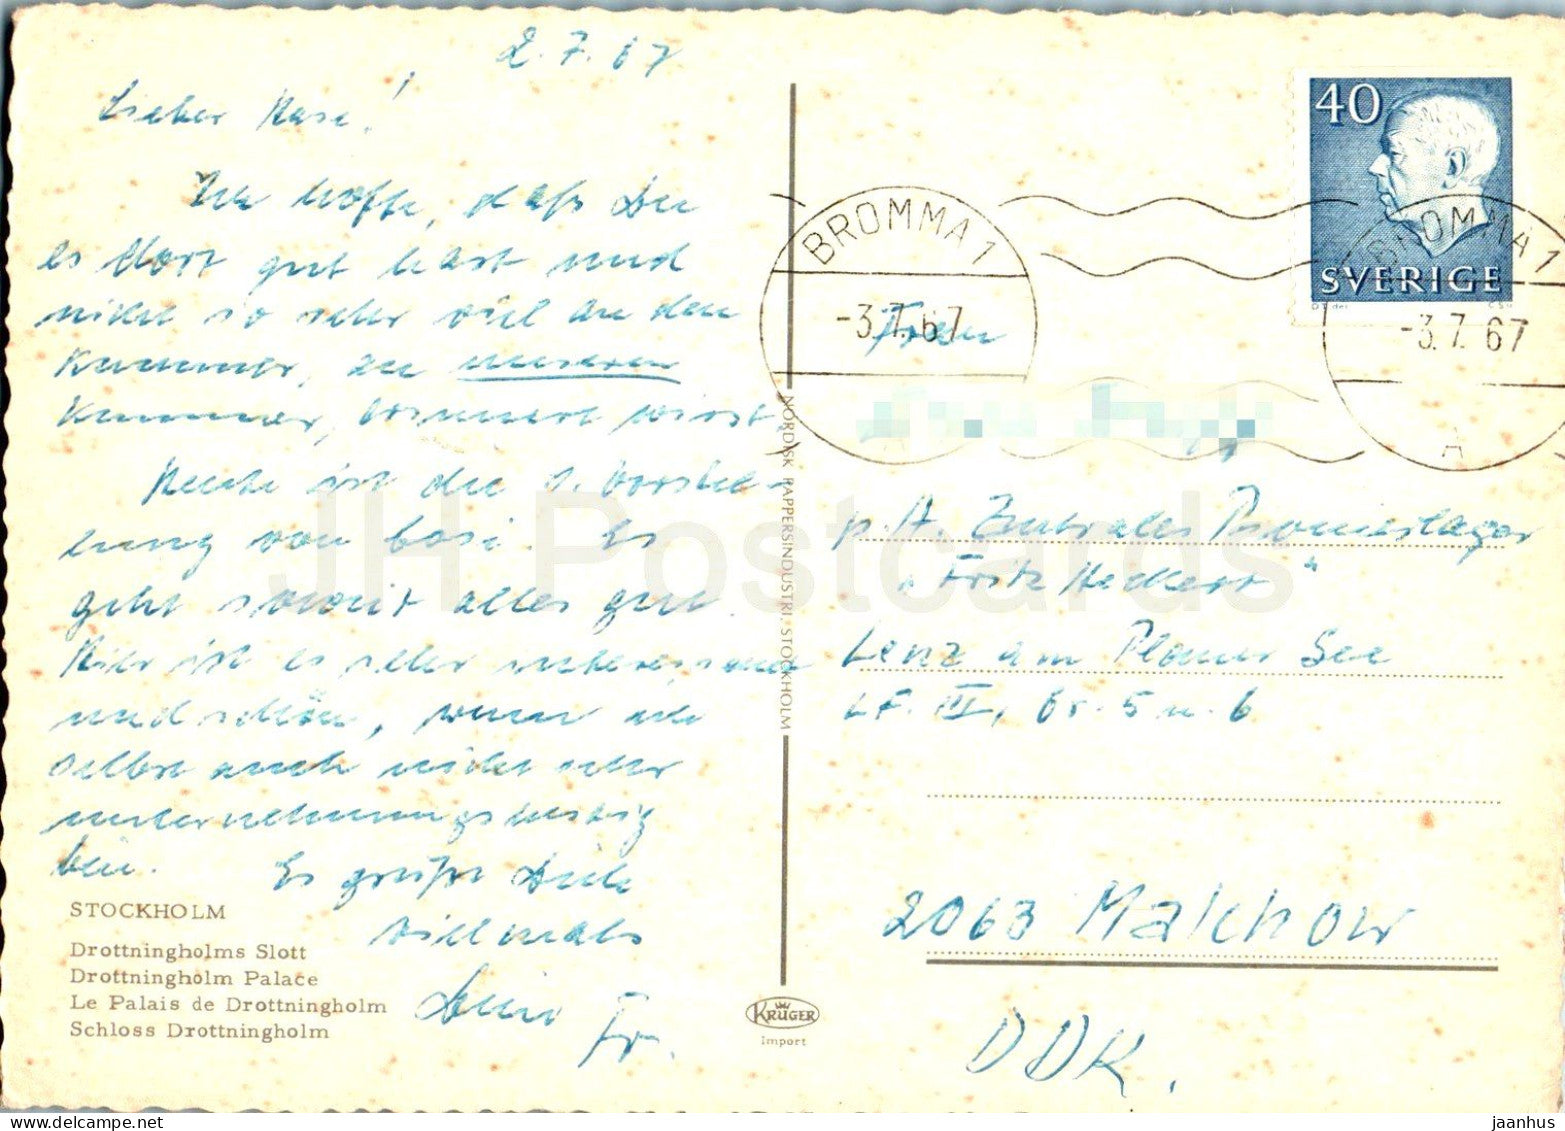 2.7.67
Lieber Hase!
Ich hoffe, daß Du
es dort gut hast und
nicht so sehr viel an den
Kummer, an unseren
Kummer, erinnert wirst.
Heute ist die 1. Vorstel-
lung von Cosi. Es
geht soweit alles gut.
Hier ist es sehr interessant
und schön, wenn ich
selbst auch nicht sehr
unternehmungslustig
bin. Es grüßt Dich
vielmals
Dein Fr.
STOCKHOLM
Drottningholms Slott
Drottningholm Palace
Le Palais de Drottningholm
Schloss Drottningholm
NORDISK PAPPERSINDUSTRI, STOCKHOLM
KRÜGER
Import
40
SVERIGE
BROMMA 1
-3.7.67
A
BROMMA 1
-3.7.67
A
p. A. Zentrales Pionierlager
"Fritz Heckert"
Lenz am Plauer See
LF. III, Gr. 5 u. 6
2063 Malchow
DDR.
JH Postcards
jaanhus